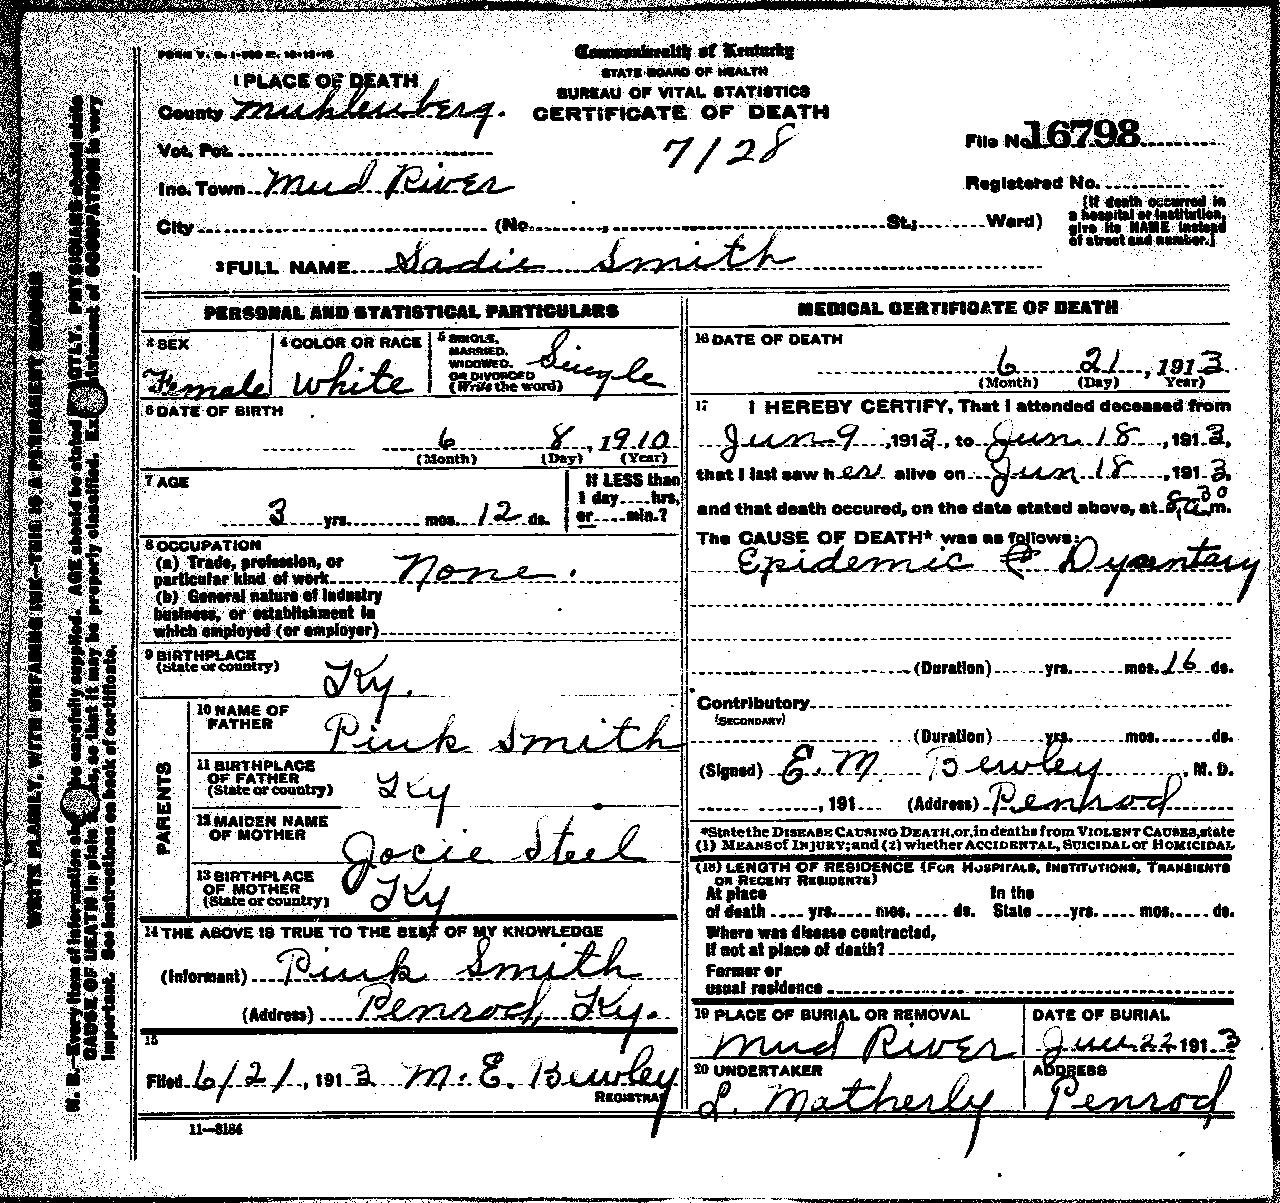 Commonwealth of Kentucky
STATE BOARD OF HEALTH
BUREAU OF VITAL STATISTICS
CERTIFICATE OF DEATH
7/28
1 PLACE OF DEATH
County Muhlenberg.
Vot. Pct.
Inc. Town Mud River
City (No. , St; Ward)
File No. 16798
Registered No.
[If death occurred in
a hospital or institution,
give its NAME instead
of street and number.]
2 FULL NAME Sadie Smith
PERSONAL AND STATISTICAL PARTICULARS
3 SEX
Female
4 COLOR OR RACE
White
5 SINGLE,
MARRIED,
WIDOWED,
OR DIVORCED
(Write the word)
Single
6 DATE OF BIRTH
6 8, 1910
(Month) (Day) (Year)
7 AGE
3 yrs. mos. 12 ds.
If LESS than
1 day hrs,
or min.?
8 OCCUPATION
(a) Trade, profession, or
particular kind of work None.
(b) General nature of industry
business, or establishment in
which employed (or employer)
9 BIRTHPLACE
(State or country)
Ky.
PARENTS
10 NAME OF
FATHER
Pink Smith
11 BIRTHPLACE
OF FATHER
(State or country)
Ky
12 MAIDEN NAME
OF MOTHER
Jocie Steel
13 BIRTHPLACE
OF MOTHER
(State or country)
Ky
14 THE ABOVE IS TRUE TO THE BEST OF MY KNOWLEDGE
(Informant) Pink Smith
(Address) Penrod, Ky.
15
Filed 6/21, 1913 M. E. Bewley
REGISTRAR
11—3184
MEDICAL CERTIFICATE OF DEATH
16 DATE OF DEATH
6 21, 1913
(Month) (Day) Year)
17 I HEREBY CERTIFY, That I attended deceased from
Jun 9, 1913, to Jun 18, 1913,
that I last saw her alive on Jun 18, 1913,
and that death occured, on the date stated above, at 8 30 a.m.
The CAUSE OF DEATH* was as follows:
Epidemic Dysentary
(Duration) yrs. mos. 16 ds.
Contributory
(SECONDARY)
(Duration) yrs. mos. ds.
(Signed) E. M Bewley, M. D.
, 191 (Address) Penrod
*State the DISEASE CAUSING DEATH, or, in deaths from VIOLENT CAUSES, state
(1) MEANS of INJURY; and (2) whether ACCIDENTAL, SUICIDAL or HOMICIDAL
(18) LENGTH OF RESIDENCE (FOR HOSPITALS, INSTITUTIONS, TRANSIENTS
OR RECENT RESIDENTS)
At place In the
of death yrs. mos. ds. State yrs. mos. ds.
Where was disease contracted,
if not at place of death?
Former or
usual residence
19 PLACE OF BURIAL OR REMOVAL
Mud River
DATE OF BURIAL
Jun 22 1913
20 UNDERTAKER
L. Matherly
ADDRESS
Penrod
WRITE PLAINLY, WITH UNFADING INK—THIS IS A PERMANENT RECORD
N. B.—Every item of information should be carefully supplied. AGE should be stated EXACTLY. PHYSICIANS should state
CAUSE OF DEATH in plain terms, so that it may be properly classified. Exact statement of OCCUPATION is very
important. See instructions on back of certificate.